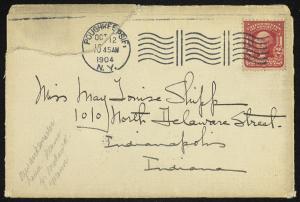 POUGHKEEPSIE
OCT 12
10 45AM
1904
N.Y.
Miss May Louise Shipp
1010 North Delaware Street.
Indianapolis
Indiana